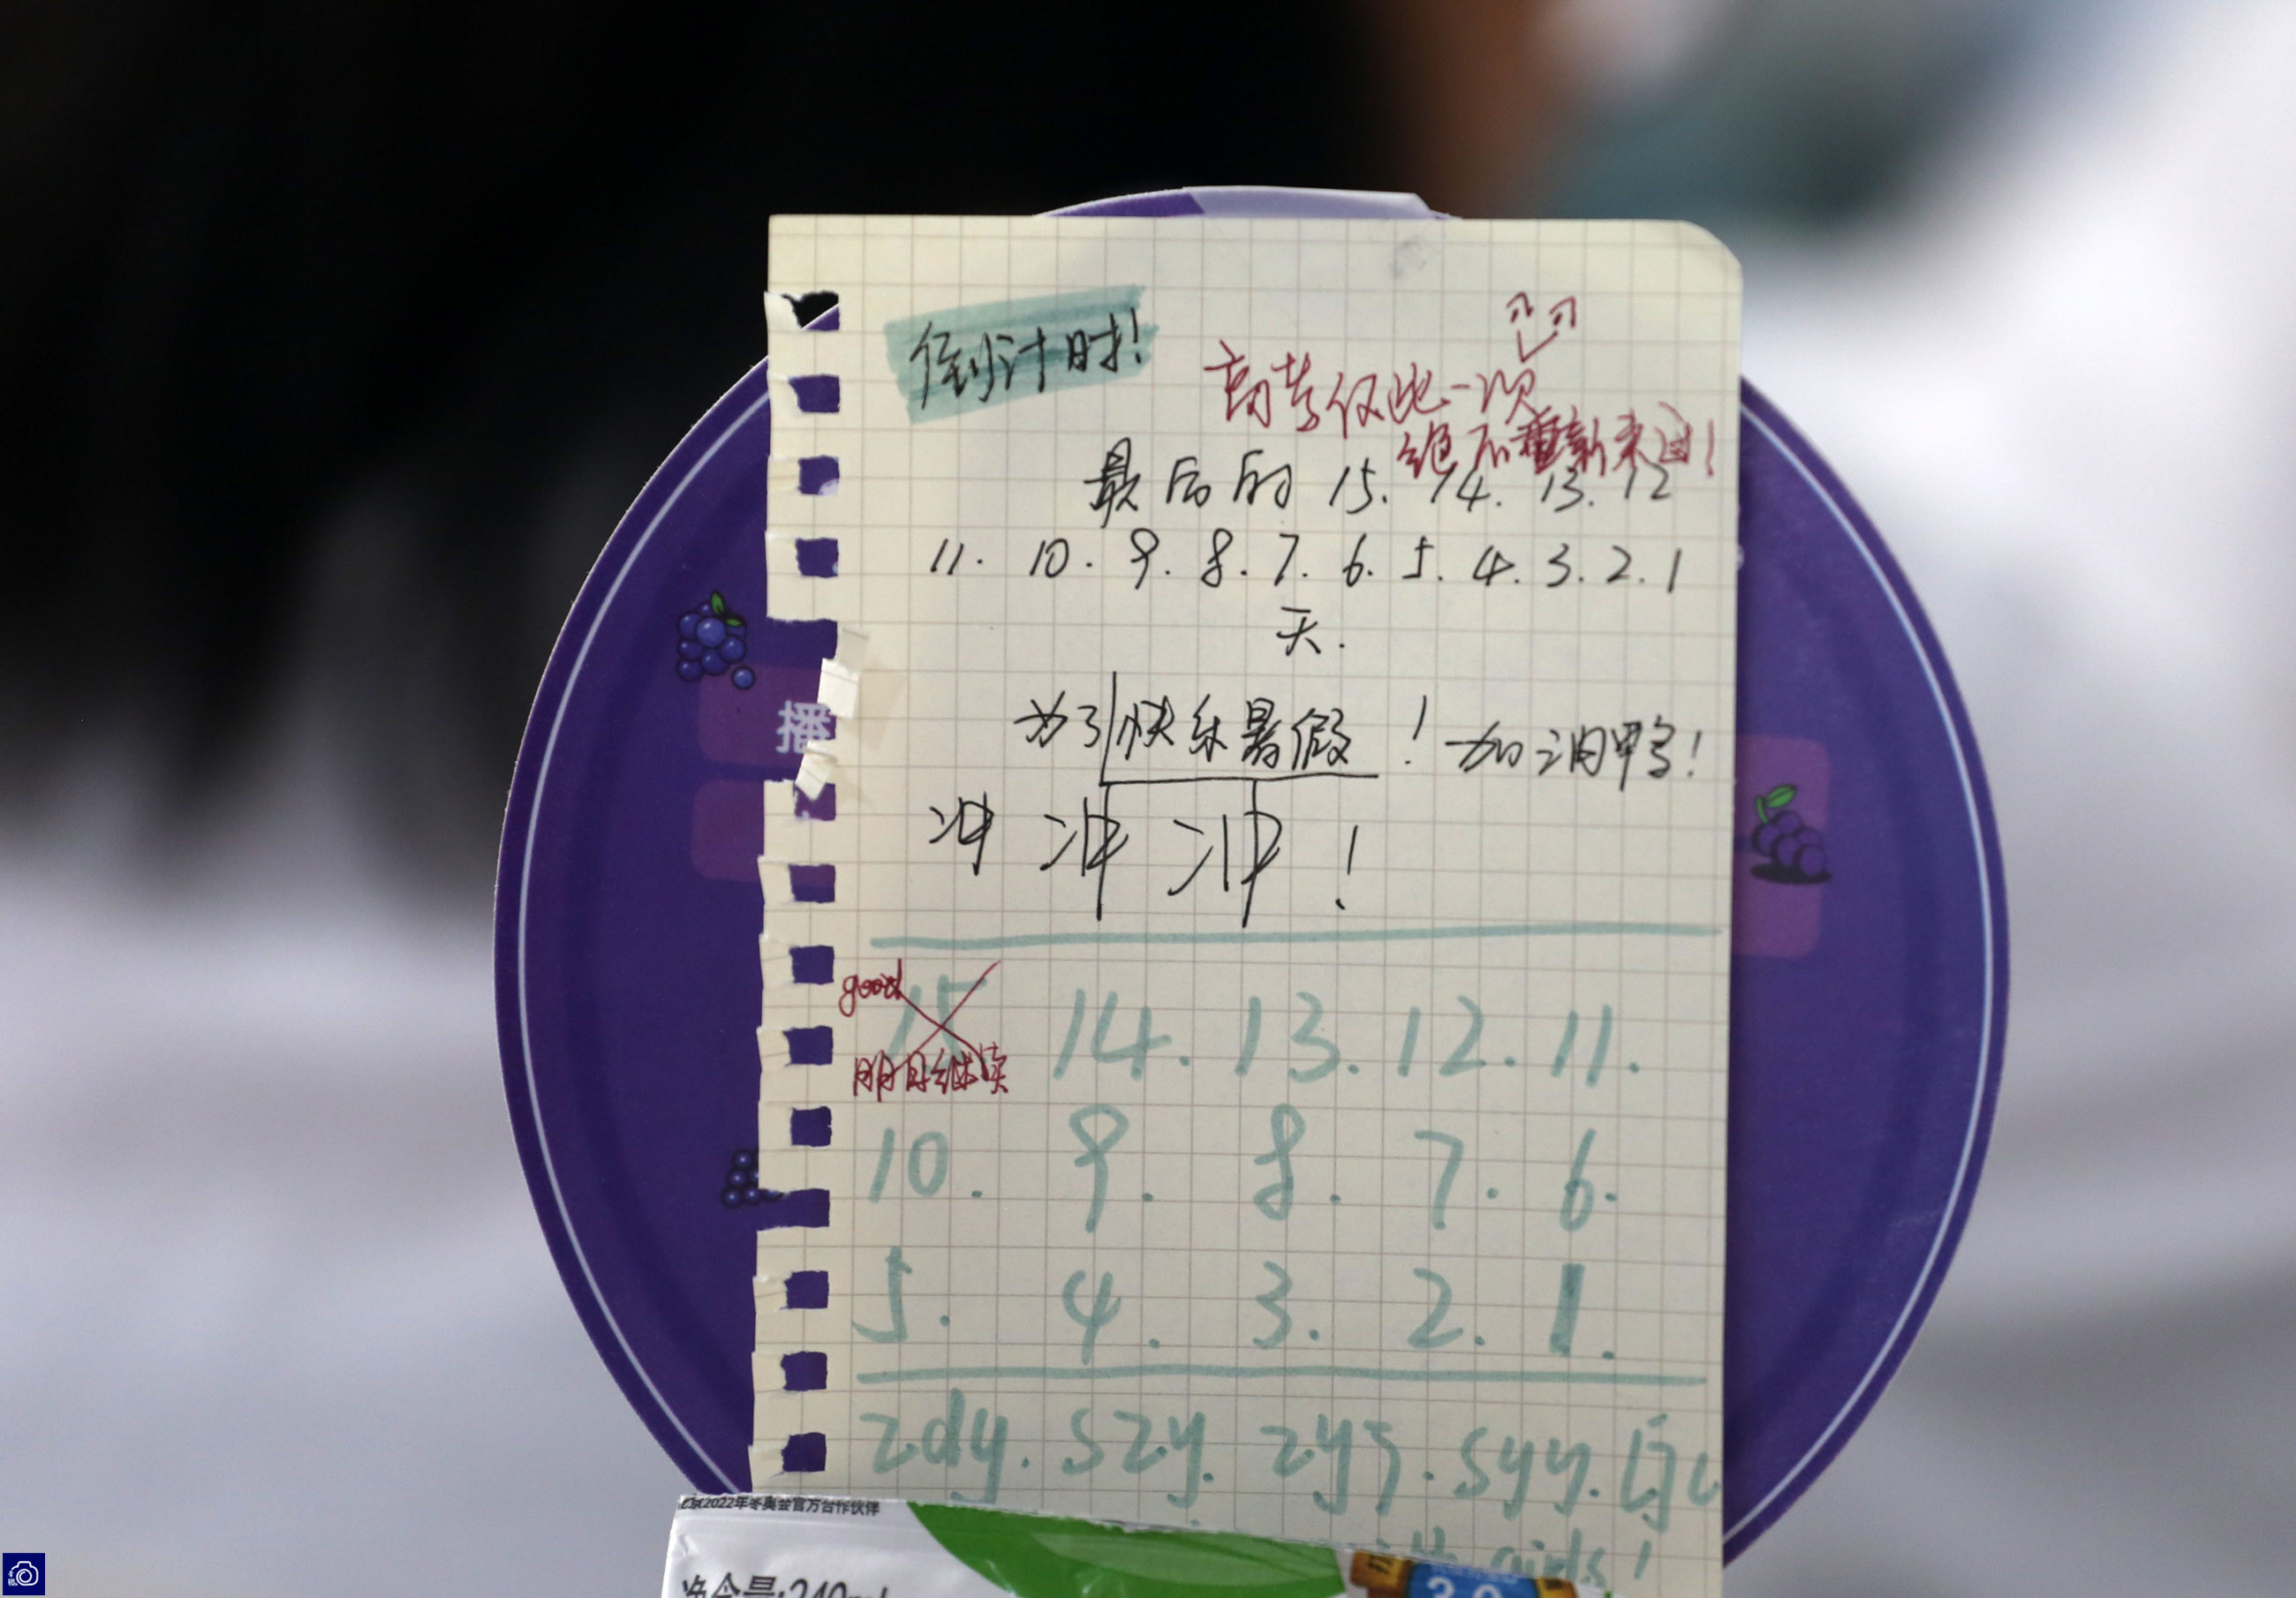 倒计时!
高考仅此一次
绝不重新来过!
最后的 15. 14. 13. 12
11. 10. 9. 8. 7. 6. 5. 4. 3. 2. 1
天.
为了快乐暑假! 加油鸭!
冲 冲 冲!
good
15 14. 13. 12. 11.
明日继续
10. 9. 8. 7. 6.
5. 4. 3. 2. 1.
zdy. szy. zyj. syy.
girls!
播
北京2022年冬奥会官方合作伙伴
净含量:240ml